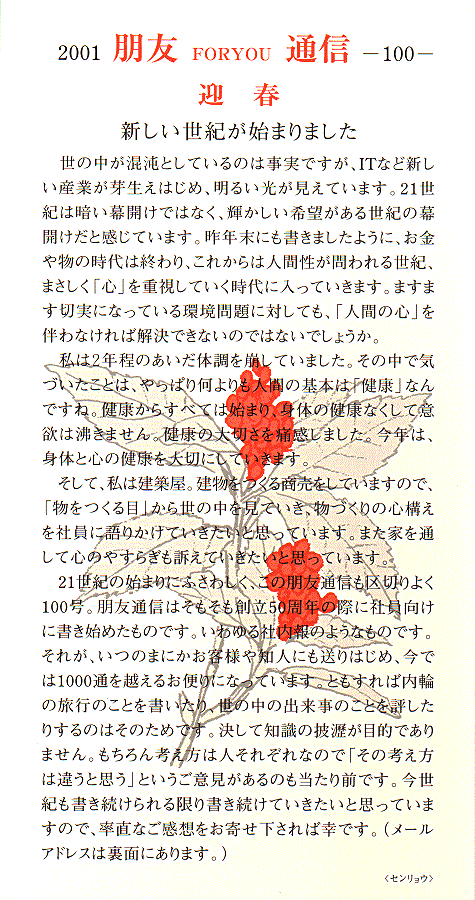 2001 朋友 FORYOU 通信 －100－
迎 春
新しい世紀が始まりました
世の中が混沌としているのは事実ですが、ITなど新し
い産業が芽生えはじめ、明るい光が見えています。21世
紀は暗い幕開けではなく、輝かしい希望がある世紀の幕
開けだと感じています。昨年末にも書きましたように、お金
や物の時代は終わり、これからは人間性が問われる世紀、
まさしく「心」を重視していく時代に入っていきます。ますま
す切実になっている環境問題に対しても、「人間の心」を
伴わなければ解決できないのではないでしょうか。
私は2年程のあいだ体調を崩していました。その中で気
づいたことは、やっぱり何よりも人間の基本は「健康」なん
ですね。健康からすべては始まり、身体の健康なくして意
欲は沸きません。健康の大切さを痛感しました。今年は、
身体と心の健康を大切にしていきます。
そして、私は建築屋。建物をつくる商売をしていますので、
「物をつくる目」から世の中を見ていき、物づくりの心構え
を社員に語りかけていきたいと思っています。また家を通
して心のやすらぎも訴えていきたいと思っています。
21世紀の始まりにふさわしく、この朋友通信も区切りよく
100号。朋友通信はそもそも創立50周年の際に社員向け
に書き始めたものです。いわゆる社内報のようなものです。
それが、いつのまにかお客様や知人にも送りはじめ、今で
は1000通を越えるお便りになっています。ともすれば内輪
の旅行のことを書いたり、世の中の出来事のことを評した
りするのはそのためです。決して知識の披瀝が目的であり
ません。もちろん考え方は人それぞれなので「その考え方
は違うと思う」というご意見があるのも当たり前です。今世
紀も書き続けられる限り書き続けていきたいと思っていま
すので、率直なご感想をお寄せ下されば幸です。（メール
アドレスは裏面にあります。）
〈センリョウ〉